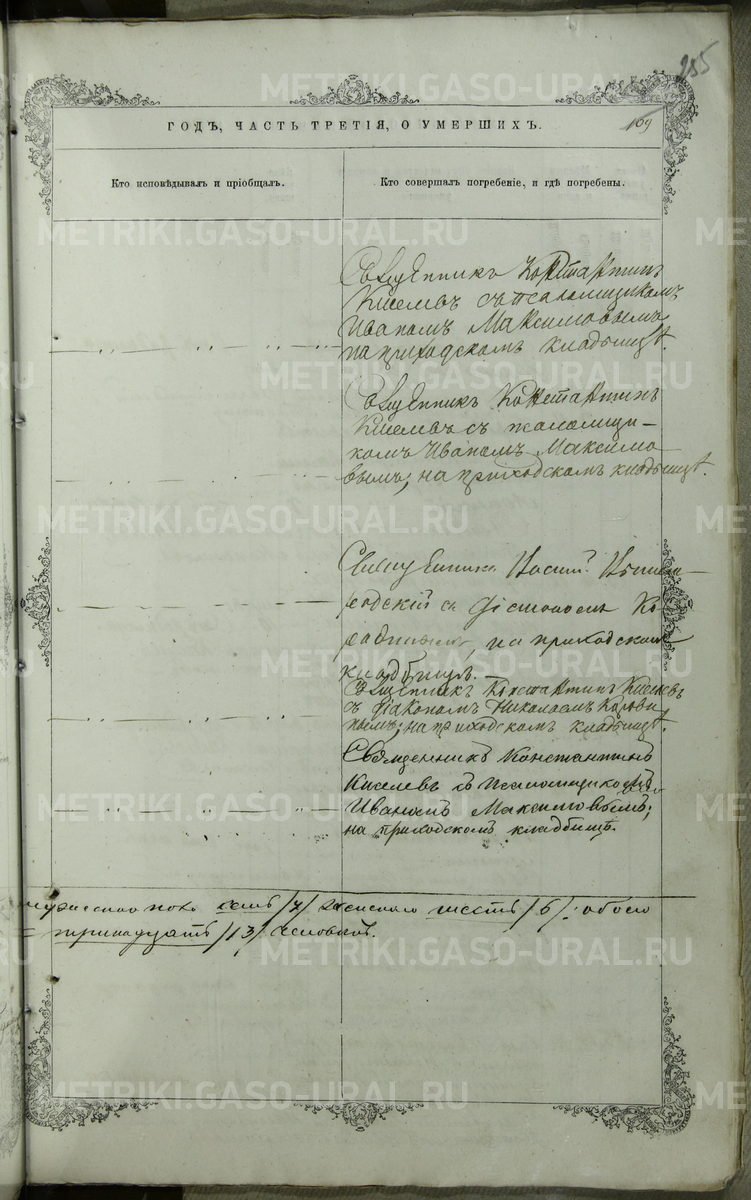 255
169
ГОДЪ, ЧАСТЬ ТРЕТІЯ, О УМЕРШИХЪ.
Кто исповѣдывалъ и пріобщалъ.
Кто совершалъ погребеніе, и гдѣ погребены.
Священникъ Константинъ
Киселевъ съ псаломщикомъ
Иваномъ Максимовымъ
на приходскомъ кладбищѣ.
Священникъ Константинъ
Киселевъ съ псаломщи-
комъ Иваномъ Максимо
вымъ; на приходскомъ кладбищѣ.
Священникъ
съ Діакономъ Ко
на приходскомъ
кладбищѣ.
Священникъ Константинъ Киселевъ
съ Діакономъ Николаемъ Корови
нымъ; на приходскомъ кладбищѣ.
Священникъ Константинъ
Киселевъ съ псаломщикомъ
Иваномъ Максимовымъ;
на приходскомъ кладбищѣ.
мужескаго пола семь /7/ женскаго шесть /6/; обоего
= тринадцать /13/ человѣкъ.
METRIKI.GASO-URAL.RU